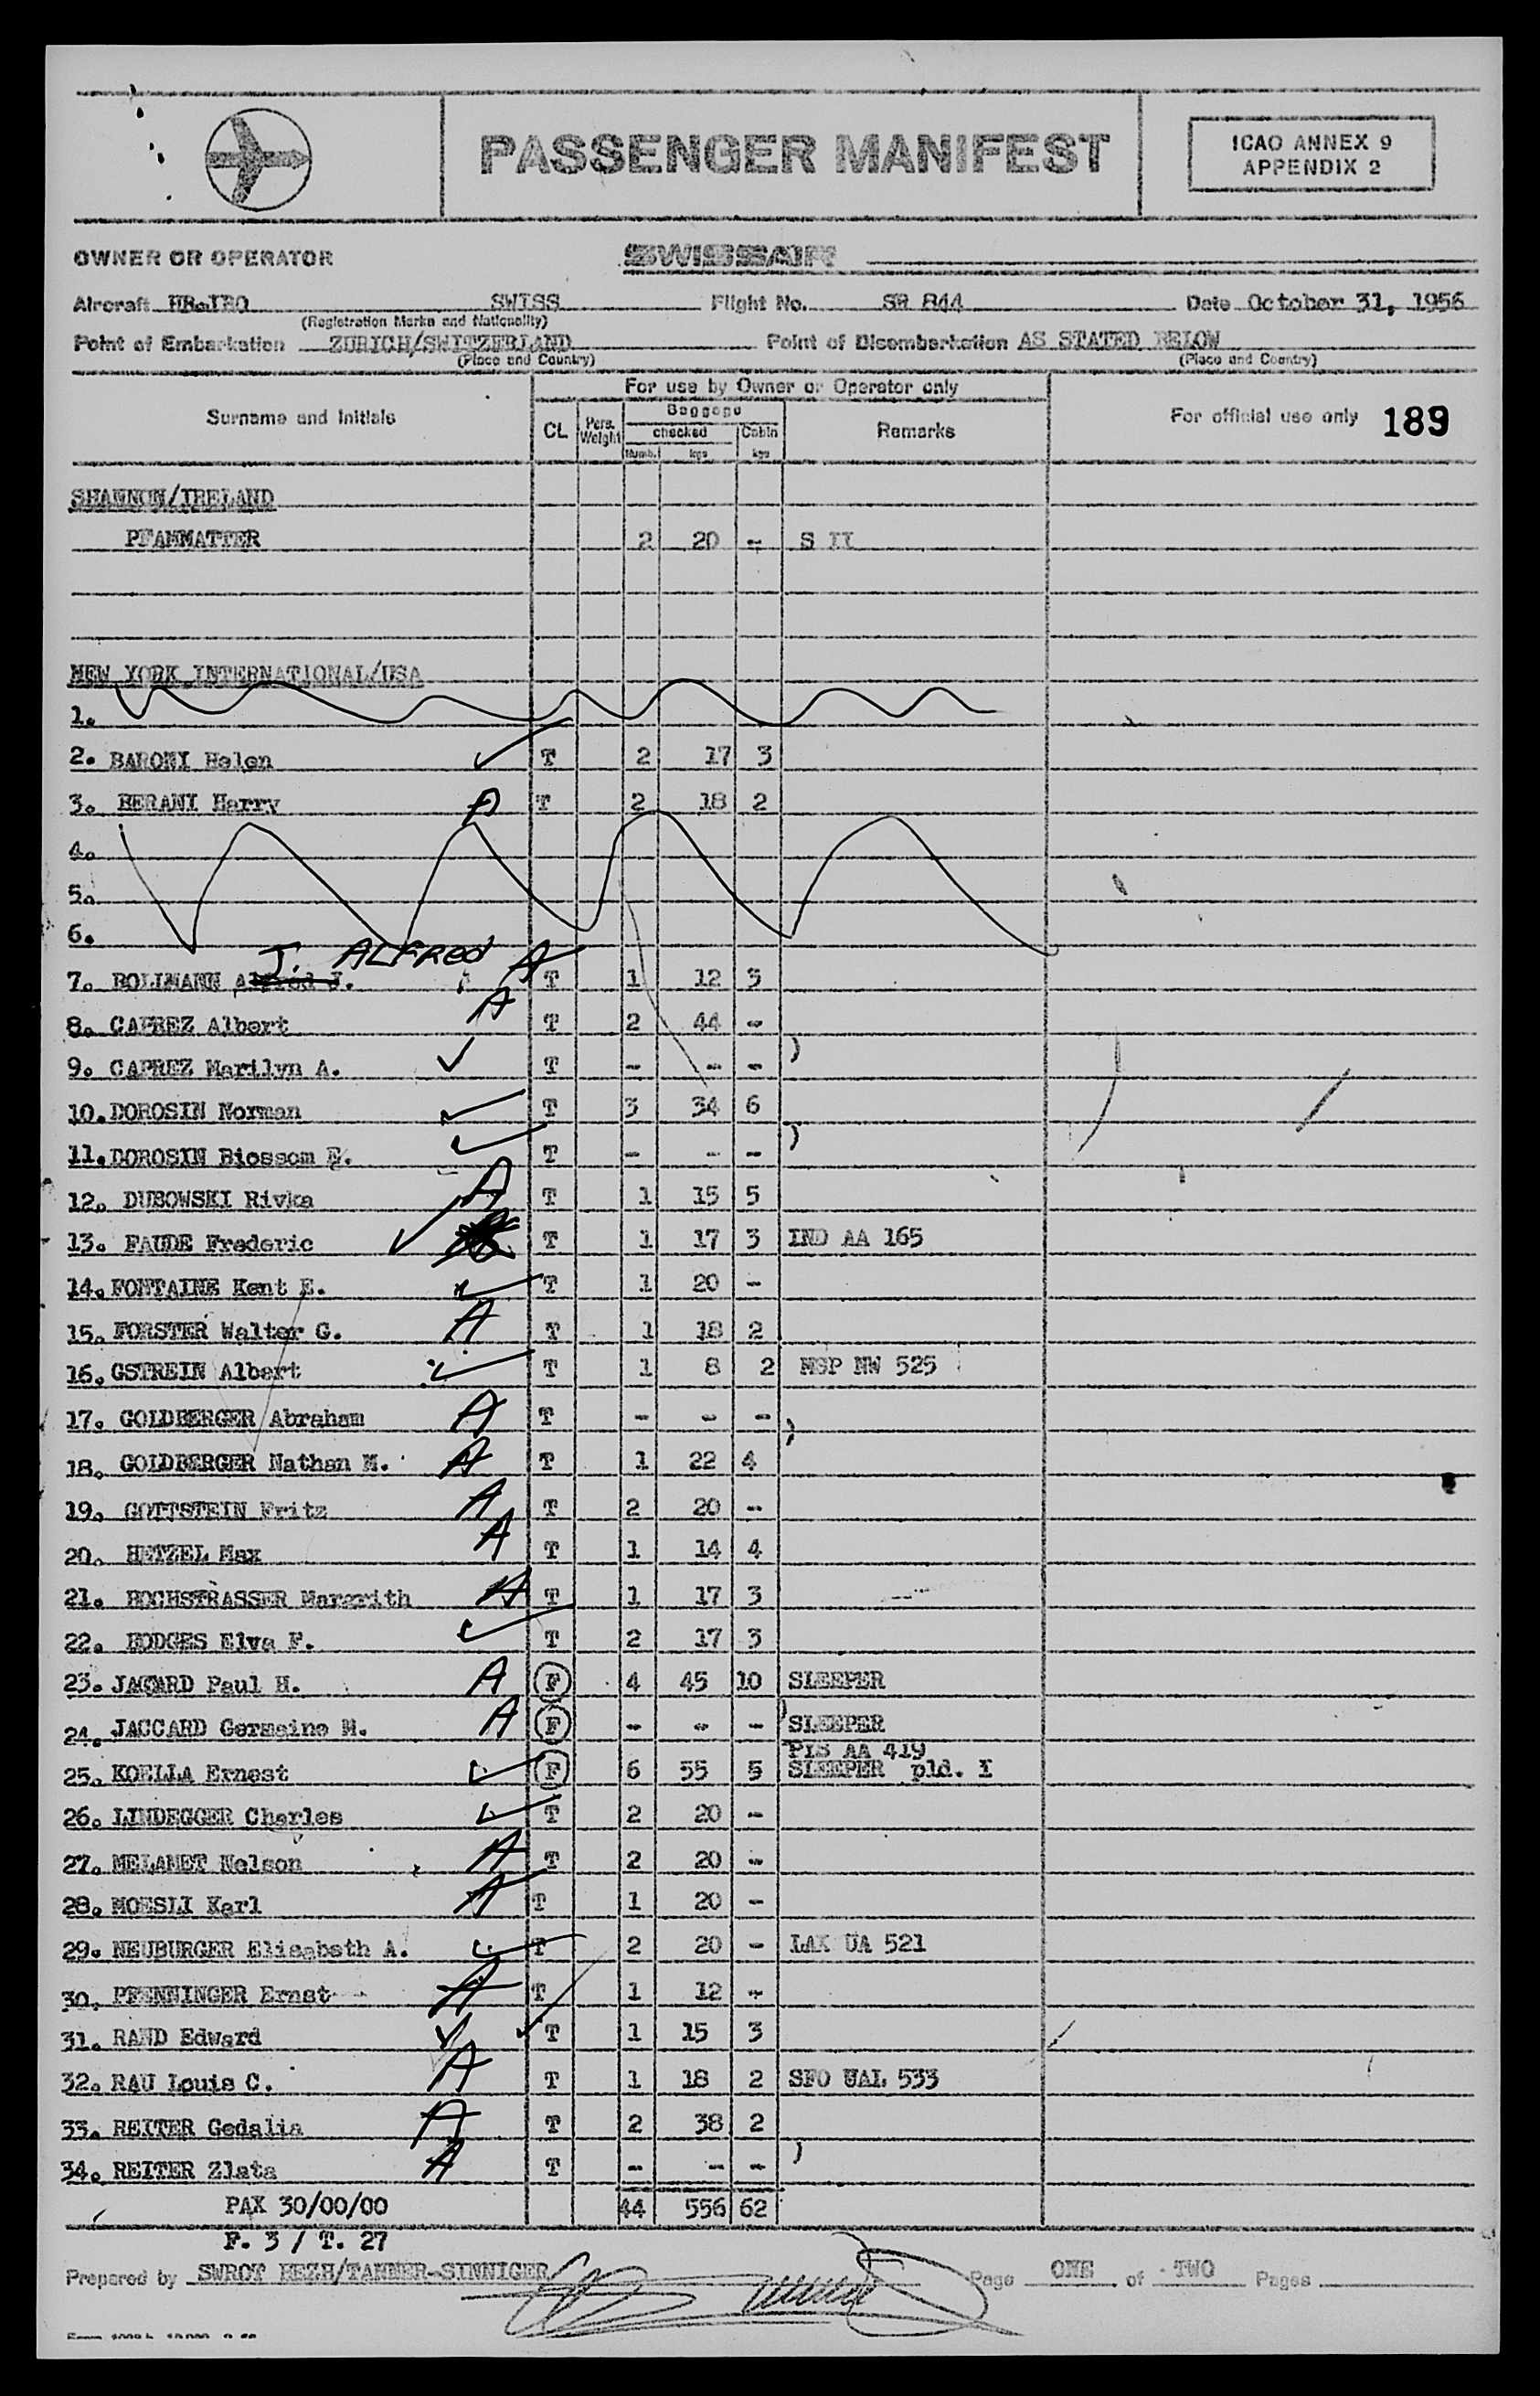 PASSENGER MANIFEST
ICAO ANNEX 9
APPENDIX 2
OWNER OR OPERATOR SWISSAIR
Aircraft HB-IBO SWISS Flight No. SR 844 Date October 31, 1956
(Registration Marks and Nationality)
Point of Embarkation ZURICH/SWITZERLAND Point of Disembarkation AS STATED BELOW
(Place and Country) (Place and Country)
For use by Owner or Operator only
Surname and Initials CL Pers. Weight Baggage checked Numb. kgs Cabin kgs Remarks For official use only 189
SHANNON/IRELAND
PFAMMATTER 2 20 - S II
NEW YORK INTERNATIONAL/USA
1.
2. BARONI Helen T 2 17 3
3. BERANI Harry A T 2 18 2
4.
5.
6.
J. ALFRed
7. BOLLMANN Alfred J. A T 1 12 3
8. CAPREZ Albert A T 2 44 -
9. CAPREZ Marilyn A. T - - - )
10. DOROSIN Norman T 3 34 6
11. DOROSIN Biossom E. T - - - )
12. DUBOWSKI Rivka A T 1 15 5
13. FAUDE Frederic T 1 17 3 IND AA 165
14. FONTAINE Kent E. T 1 20 -
15. FORSTER Walter G. A T 1 18 2
16. GSTREIN Albert T 1 8 2 MSP NW 525
17. GOLDBERGER Abraham A T - - - )
18. GOLDBERGER Nathan M. A T 1 22 4
19. GOTTSTEIN Fritz A T 2 20 -
20. HETZEL Max A T 1 14 4
21. HOCHSTRASSER Margrith A T 1 17 3
22. HODGES Elva F. T 2 17 3
23. JACCARD Paul H. A F 4 45 10 SLEEPER
24. JACCARD Germaine M. A F - - - ) SLEEPER
PIS AA 419
25. KOELLA Ernest F 6 55 5 SLEEPER pld. I
26. LINDEGGER Charles T 2 20 -
27. MELAMET Nelson A T 2 20 -
28. MOESLI Karl A T 1 20 -
29. NEUBURGER Elisabeth A. T 2 20 - LAX UA 521
30. PFENNINGER Ernst A T 1 12 -
31. RAND Edward T 1 15 3
32. RAU Louis C. A T 1 18 2 SFO UAL 533
33. REITER Gedalia A T 2 38 2
34. REITER Zlata A T - - - )
PAX 30/00/00 44 556 62
F. 3 / T. 27
Prepared by SWROT HEZH/TANNER-SINNIGER Page ONE of TWO Pages